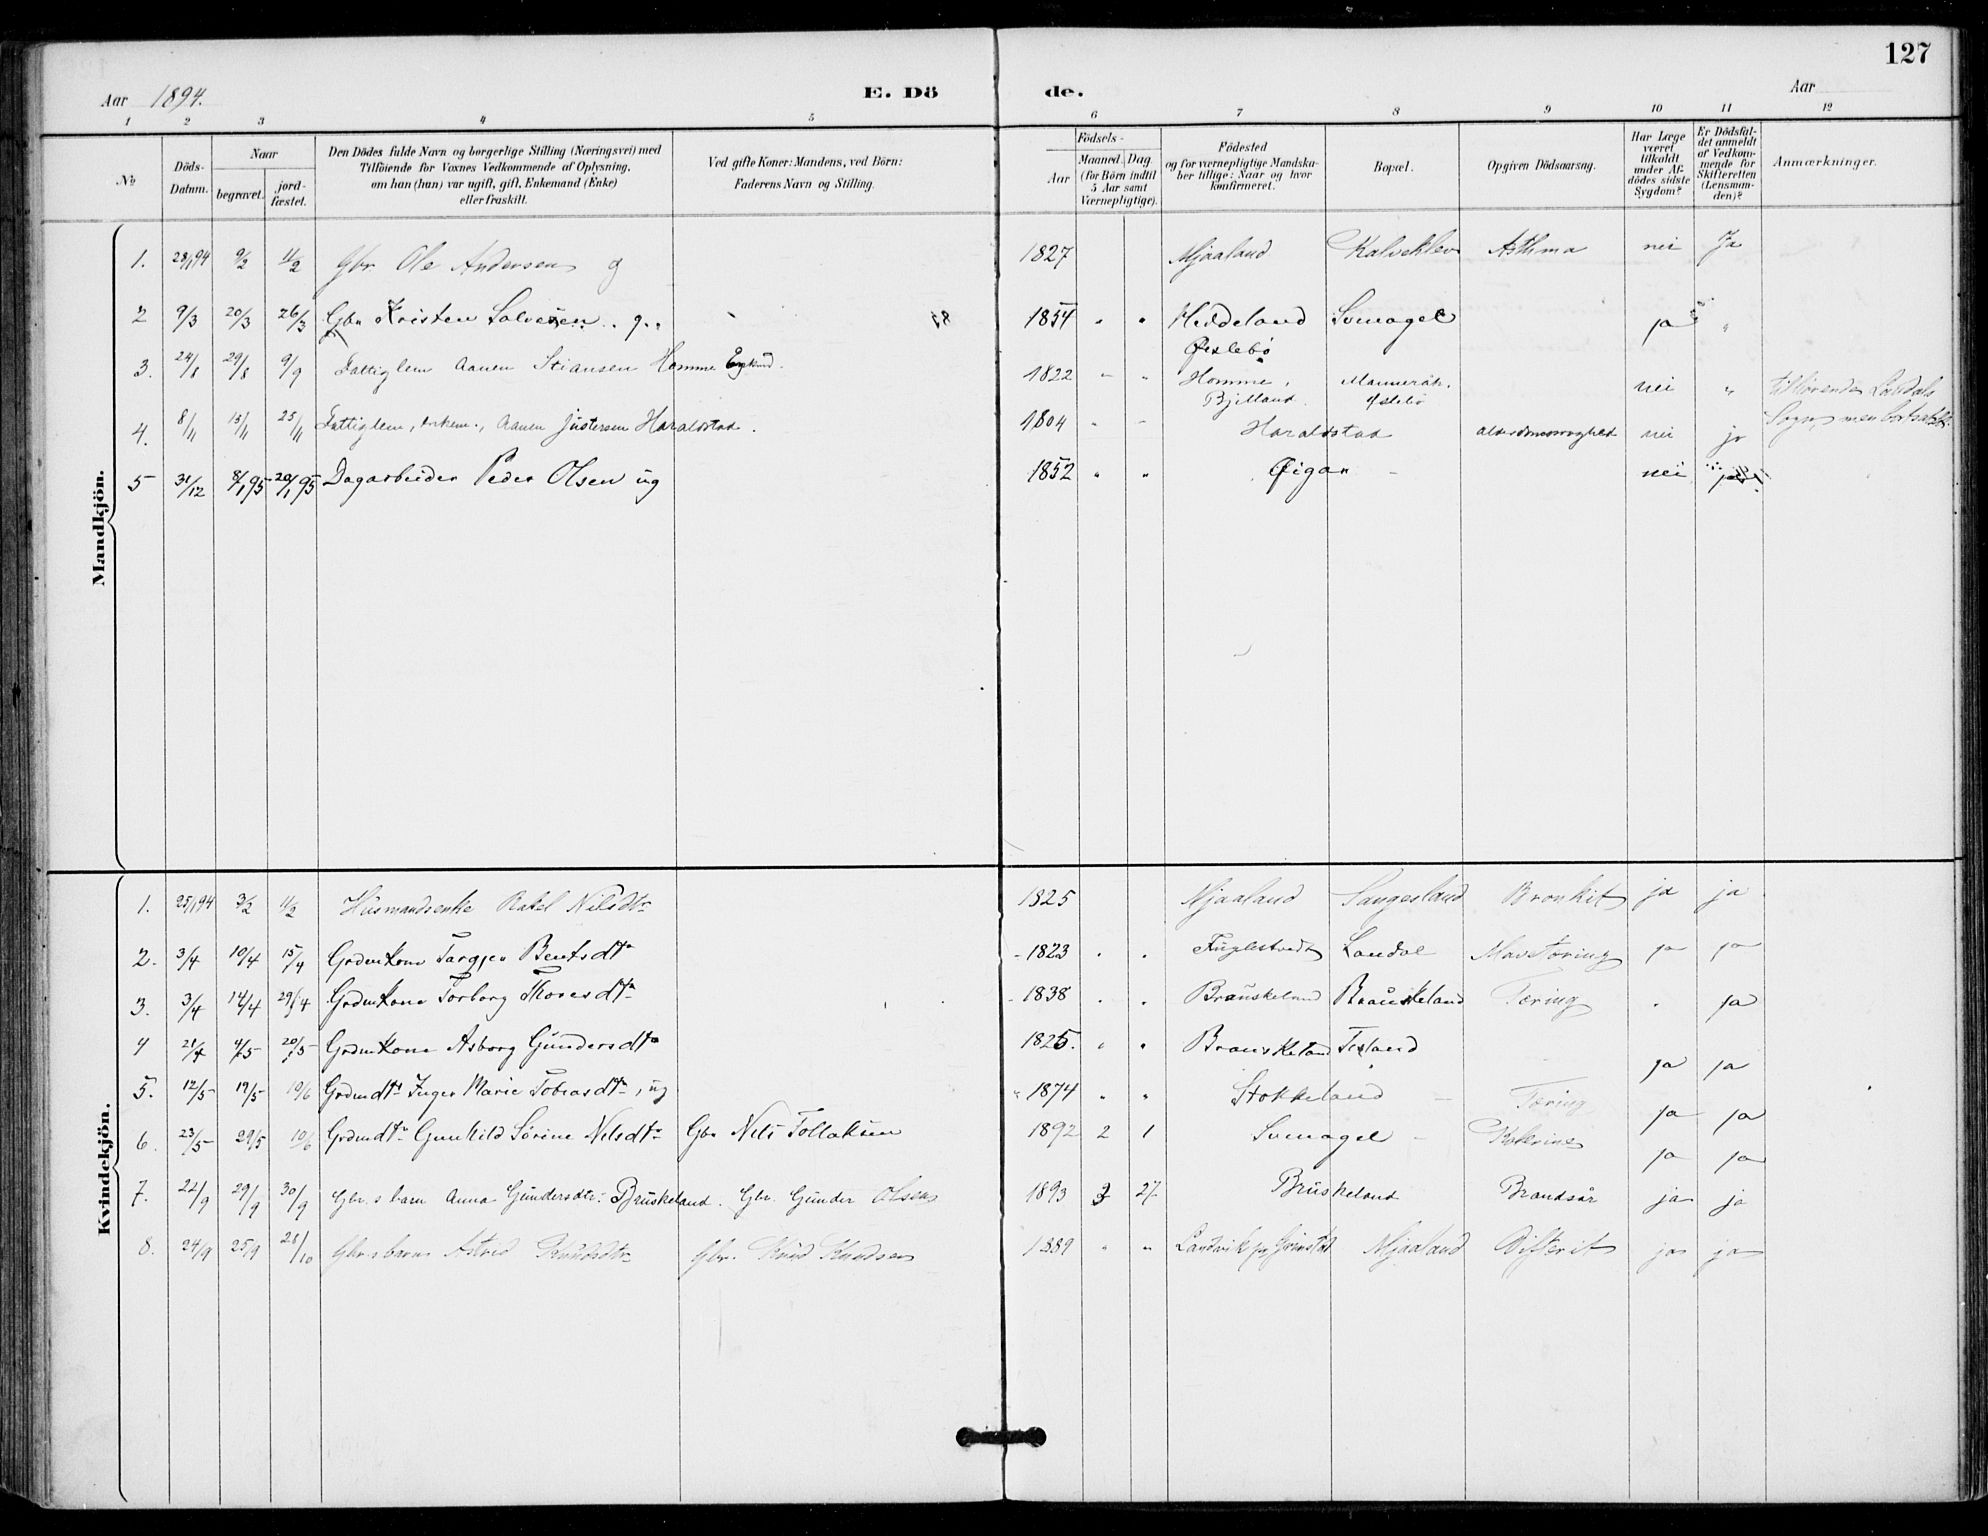 127
Aar 1894.
E. Dö
de.
Aar
1 2 3 4 5 6 7 8 9 10 11 12
No
Döds-Datum.
Naar
begravet.
jord-fæstet.
Den Dödes fulde Navn og borgerlige Stilling (Næringsvei) med
Tilföiende for Voxnes Vedkommende af Oplysning,
om han (hun) var ugift, gift, Enkemand (Enke)
eller fraskilt.
Ved gifte Koner: Mandens, ved Börn:
Faderens Navn og Stilling.
Födsels-
Aar
Maaned. Dag.
(for Börn indtil
5 Aar samt
Værnepligtige).
Födested
og for værnepligtige Mandska-
ber tillige: Naar og hvor
konfirmeret.
Bopæl.
Opgiven Dödsaarsag.
Har Læge
været
tilkaldt
under Af-
dödes sidste
Sygdom?
Er Dödsfal-
det anmeldt
af Vedkom-
mende for
Skifteretten
(Lensman-
den)?
Anmærkninger.
Mandkjön.
1. 28/1 94 9/2 11/2 Gbr. Ole Andersen g 1827 Mjaaland Kalveklev Asthma nei Ja
2 9/3 20/3 26/3 Gbr Kristen Salvesen .. g.. 1854 " " Heddeland Øislebø ja "
3. 24/8 29/8 9/9 Fattiglem Aanen Stiansen Homme 1822 " " Homme, Bjelland nei " tilhørende Laudals
4. 8/11 15/11 25/11 Fattiglem, enkem., Aanen Justersen Haraldstad. 1804 " " Haraldstad alderdomssvaghed nei ja Sogn, men bortsat
5 31/12 8/1 95 20/1 95 Dagarbeider Peder Olsen ug 1852 " " Øigar - nei ja
Kvindekjön.
1. 25/1 94 3/2 11/2 Husmandsenke Rakel Nilsdtr 1825 Mjaaland Sangesland Bronkit ja ja
2. 3/4 10/4 15/4 Grdmkone Targjer Bentsdtr 1823 " " Fuglestvedt Laudal Mavetæring ja ja
3. 3/4 14/4 29/4 Grdmkone Torborg Thoresdtr 1838 " " Brauskeland Brauskeland Tæring " ja
4 21/4 4/5 20/5 Grdmkone Asborg Gundersdtr 1825. " " Brauskeland Tisland ja ja
5. 12/5 19/5 10/6 Grdmdtr Inger Marie Tobiasdtr, ug 1874 " " Stokkeland - Tæring ja ja
6. 23/5 29/5 10/6 Grdmdtr Gunhild Sørine Nilsdtr Gbr Nils Tollaksen 1892 2 1 - Kolerine ja ja
7. 22/9 29/9 30/9 Gbr.s barn Anna Gundersdtr: Bruskeland. Gbr. Gunder Olsen 1893 3 27 Bruskeland Brandsår ja ja
8. 24/9 25/9 28/10 Gbr.s barn Astrid Knudsdtr Gbr. Knud Knudsen 1889 " " Landvik pr Grimstad Mjaaland Difterit ja ja